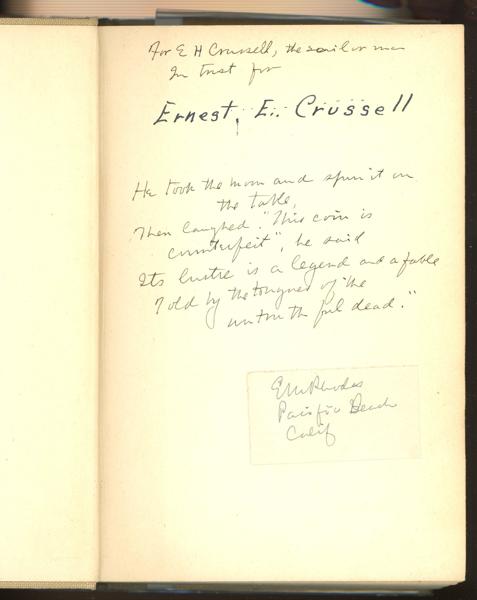 For E H Crussell, the sailor man
In trust for
Ernest. E. Crussell
He took the moon and spun it on
the table,
Then laughed. "This coin is
counterfeit", he said
Its lustre is a legend and a fable
Told by the tongues of the
untruthful dead."
EMRhodes
Pacific Beach
Calif